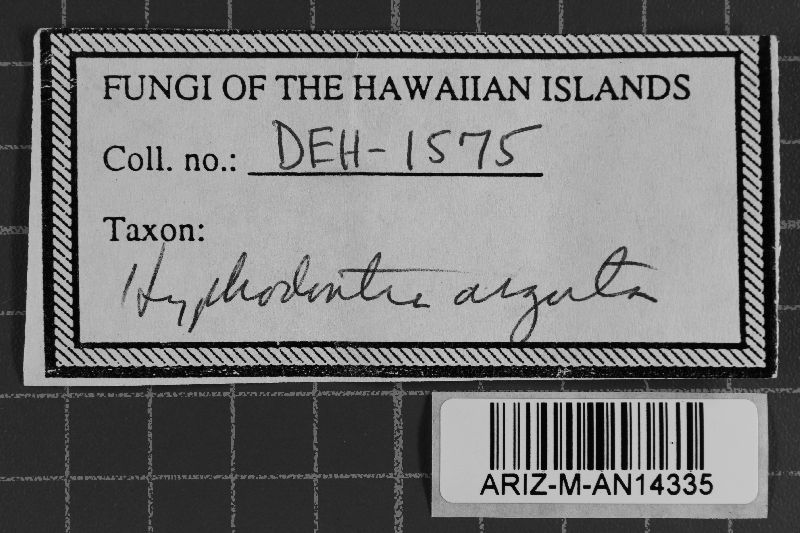 FUNGI OF THE HAWAIIAN ISLANDS
Coll. no.: DEH-1575
Taxon:
Hyphodontia arguta
ARIZ-M-AN14335